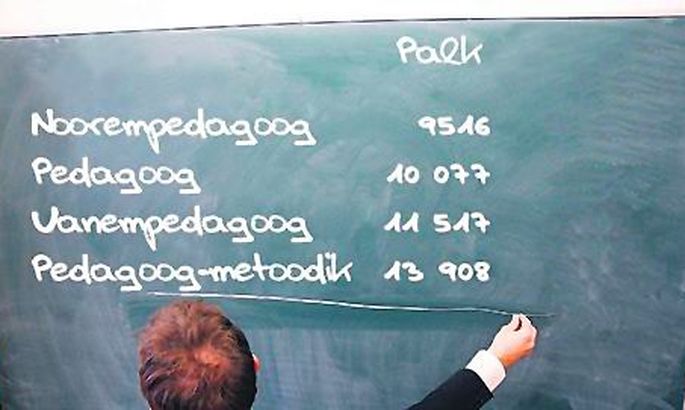 Palk
Noorempedagoog 9516
Pedagoog 10 077
Vanempedagoog 11 517
Pedagoog-metoodik 13 908